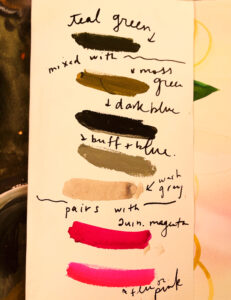 teal green
mixed with
moss
green
dark blue
buff + blue.
wash
gray
pairs with
quin. magenta
pink